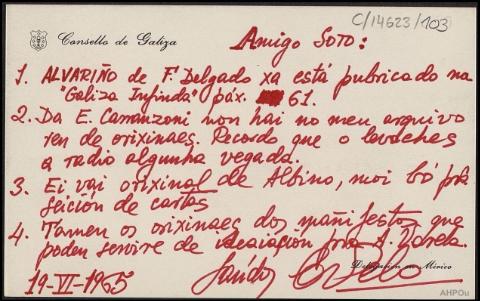 C/14623/103
Consello de Galiza
Amigo SOTO:
1. ALVARIÑO de F. Delgado xa está pubricado na
"Galiza Infinda" páx. 61.
2. Da E. Carranzoni non hai no meu arquivo
ren de orixinaes. Recordo que o levaches
a radio algunha vegada.
3. Ei vai orixinal de Albino, moi bó pra
seición de cartas
4. Tamen os orixinaes dos mañifestos que
poden servire de ilustración pra A.
Delegación en México
19-VI-1965 Saúdos
AHPOu